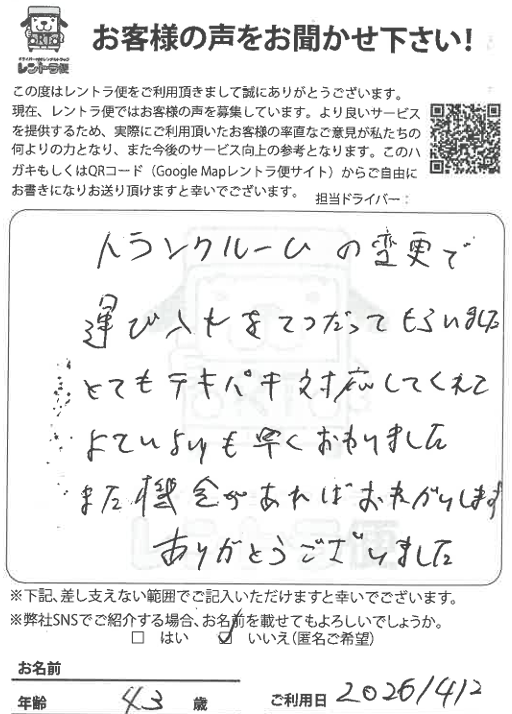 ドライバー付きレンタルトラック
レントラ便
お客様の声をお聞かせ下さい!
この度はレントラ便をご利用頂きまして誠にありがとうございます。
現在、レントラ便ではお客様の声を募集しています。より良いサービス
を提供するため、実際にご利用頂いたお客様の率直なご意見が私たちの
何よりの力となり、また今後のサービス向上の参考となります。このハ
ガキもしくはQRコード（Google Mapレントラ便サイト）からご自由に
お書きになりお送り頂けますと幸いでございます。 担当ドライバー：
トランクルームの変更で
運び入れをてつだってもらいました
とてもテキパキ対応してくれて
よていよりも早くおわりました
また機会があればおねがいします
ありがとうございました
レントラ便
※下記、差し支えない範囲でご記入いただけますと幸いでございます。
※弊社SNSでご紹介する場合、お名前を載せてもよろしいでしょうか。
□ はい ☑ いいえ(匿名ご希望)
お名前
年齢 43 歳 ご利用日 2026/4/2